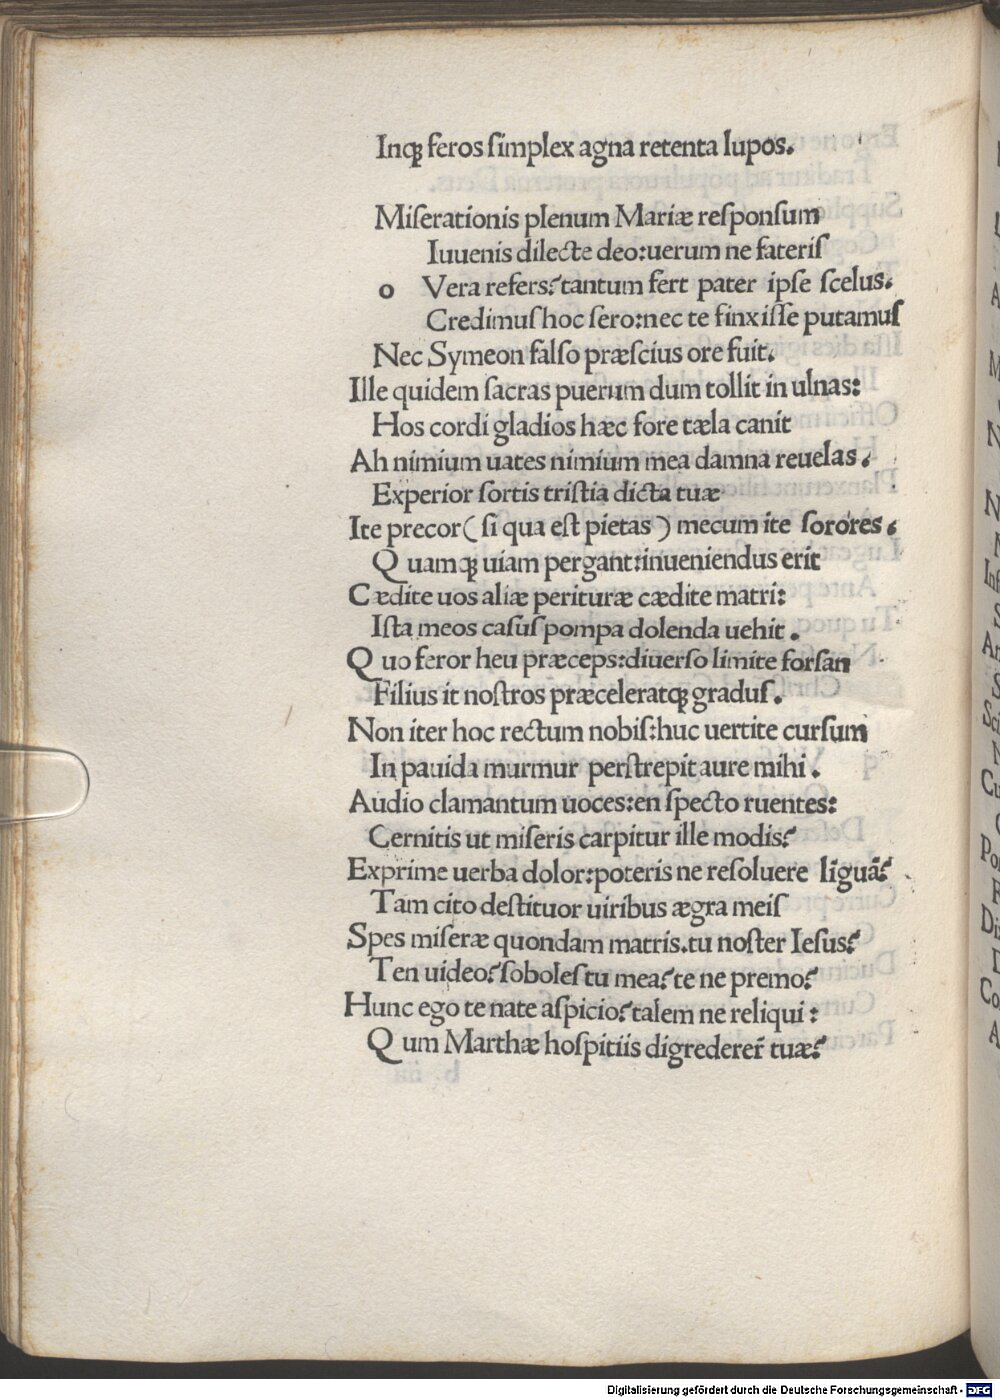 Inqꝫ feros ſimplex agna retenta lupos.
Miſerationis plenum Mariæ reſponſum
Iuuenis dilecte deo:uerum ne fateriſ
o Vera refers?tantum fert pater ipſe ſcelus.
Credimuſ hoc ſero:nec te finxiſſe putamuſ
Nec Symeon falſo præſcius ore fuit.
Ille quidem ſacras puerum dum tollit in ulnas:
Hos cordi gladios hæc fore tæla canit
Ah nimium uates nimium mea damna reuelas.
Experior ſortis triſtia dicta tuæ
Ite precor (ſi qua eſt pietas) mecum ite ſorores.
Q uamqꝫ uiam pergant:inueniendus erit
Cædite uos aliæ perituræ cædite matri:
Iſta meos caſuſ pompa dolenda uehit.
Q uo feror heu præceps:diuerſo limite forſan
Filius it noſtros præceleratqꝫ graduſ.
Non iter hoc rectum nobiſ:huc uertite curſum
In pauida murmur perſtrepit aure mihi.
Audio clamantum uoces:en ſpecto ruentes:
Cernitis ut miſeris carpitur ille modis?
Exprime uerba dolor:poteris ne reſoluere lĩguã?
Tam cito deſtituor uiribus ægra meiſ
Spes miſeræ quondam matris.tu noſter Ieſus?
Ten uideo?ſoboleſ tu mea?te ne premo?
Hunc ego te nate aſpicio?talem ne reliqui:
Q um Marthæ hoſpitiis digrederer̃ tuæ?
Digitalisierung gefördert durch die Deutsche Forschungsgemeinschaft - DFG